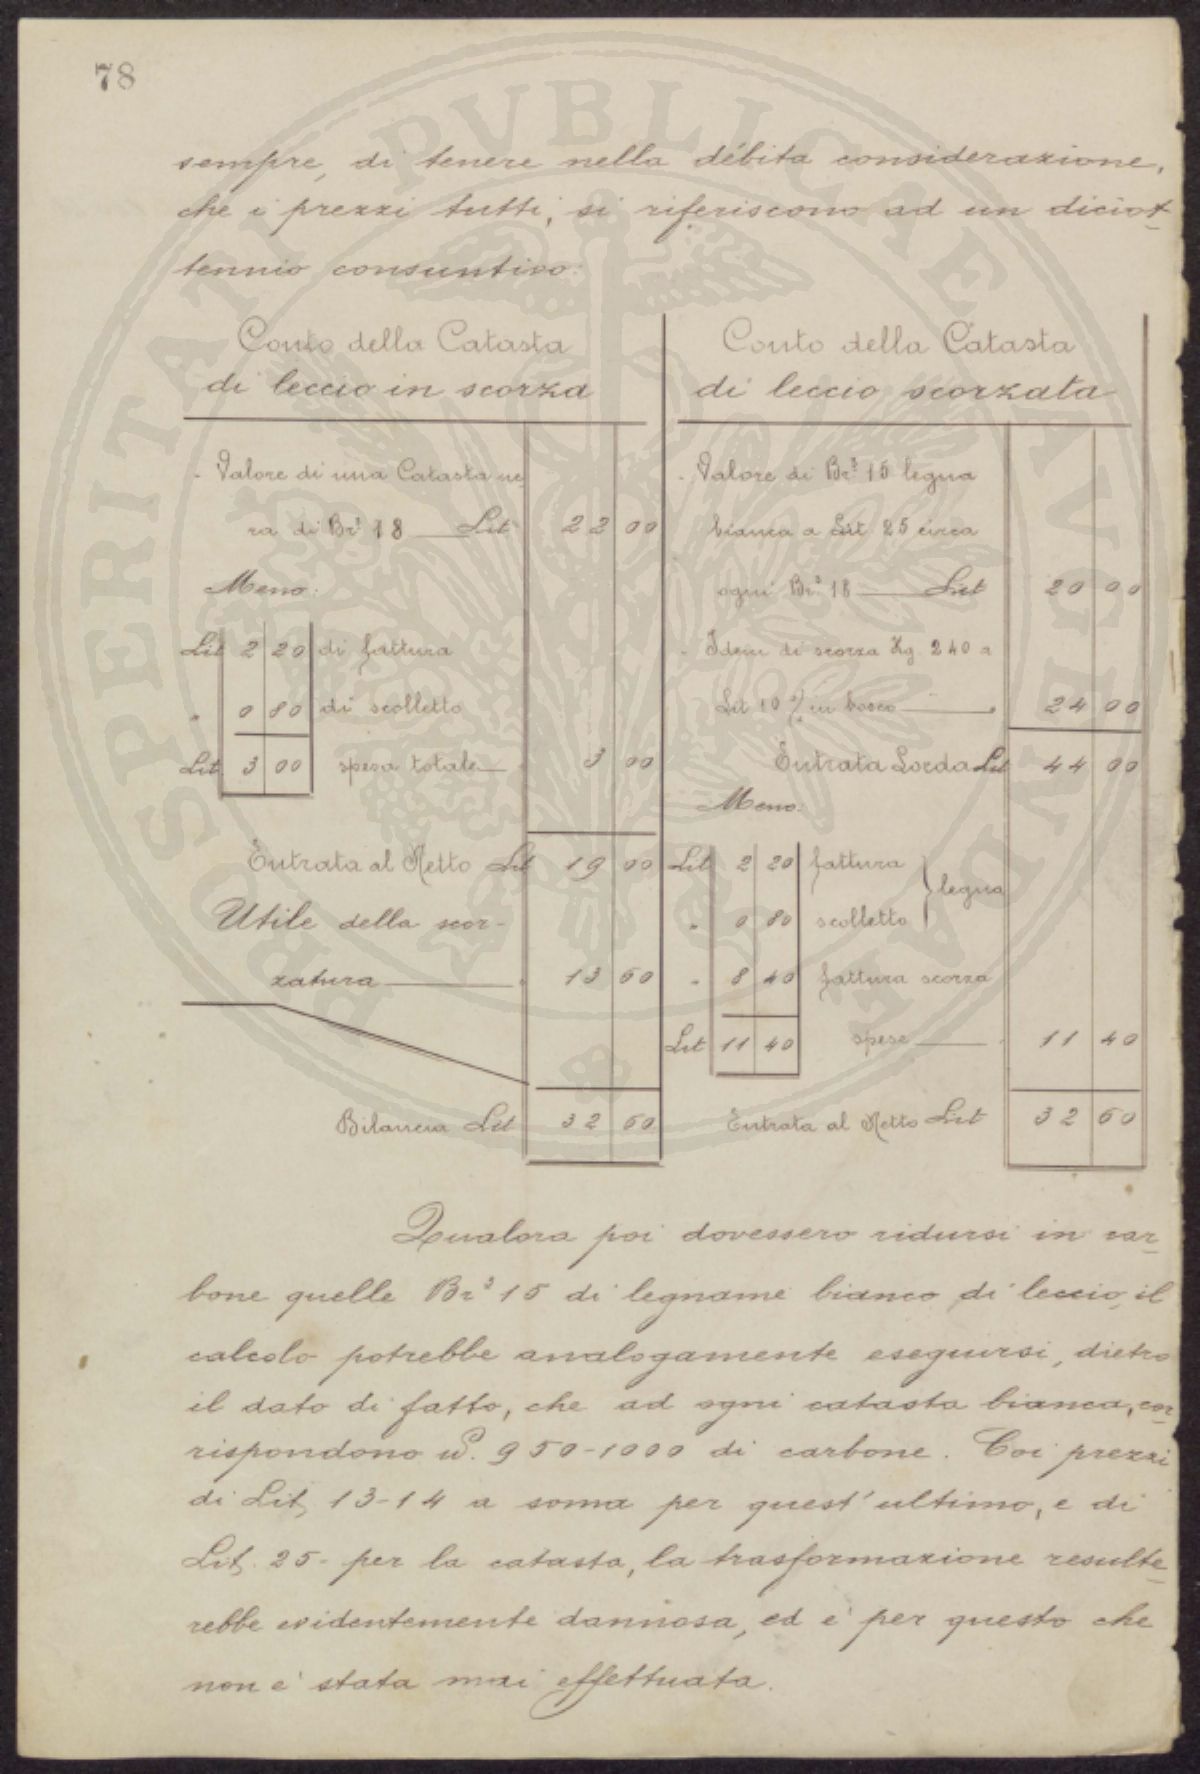 78
sempre, di tenere nella débita considerazione,
che i prezzi tutti, si riferiscono ad un diciot-
tennio consuntivo:
Conto della Catasta
di leccio in scorza
- Valore di una Catasta ne
ra di Br³ 18 Lit 22 00
Meno:
Lit 2 20 di fattura
" 0 80 di scolletto
Lit 3 00 spesa totale 3 00
Entrata al Netto Lit 19 00
Utile della scor-
zatura 13 60
Bilancia Lit 32 60
Conto della Catasta
di leccio scorzata
- Valore di Br³ 15 legna
bianca a Lit 25 circa
ogni Br³ 18 Lit 20 00
- Idem di scorza Kg. 240 a
Lit 10 % in bosco " 24 00
Entrata Lorda Lit 44 00
Meno:
Lit 2 20 fattura
" 0 80 scolletto
legna
" 8 40 fattura scorza
Lit 11 40 spese 11 40
Entrata al Netto Lit 32 60
Qualora poi dovessero ridursi in car-
bone quelle Br³ 15 di legname bianco di leccio, il
calcolo potrebbe analogamente eseguirsi, dietro
il dato di fatto, che ad ogni catasta bianca, cor-
rispondono 950-1000 di carbone. Coi prezzi
di Lit. 13-14 a soma per quest'ultimo, e di
Lit. 25- per la catasta, la trasformazione resulte-
rebbe evidentemente dannosa, ed e' per questo che
non e' stata mai effettuata.
PROSPERITATI PVBLICAE AVGENDAE